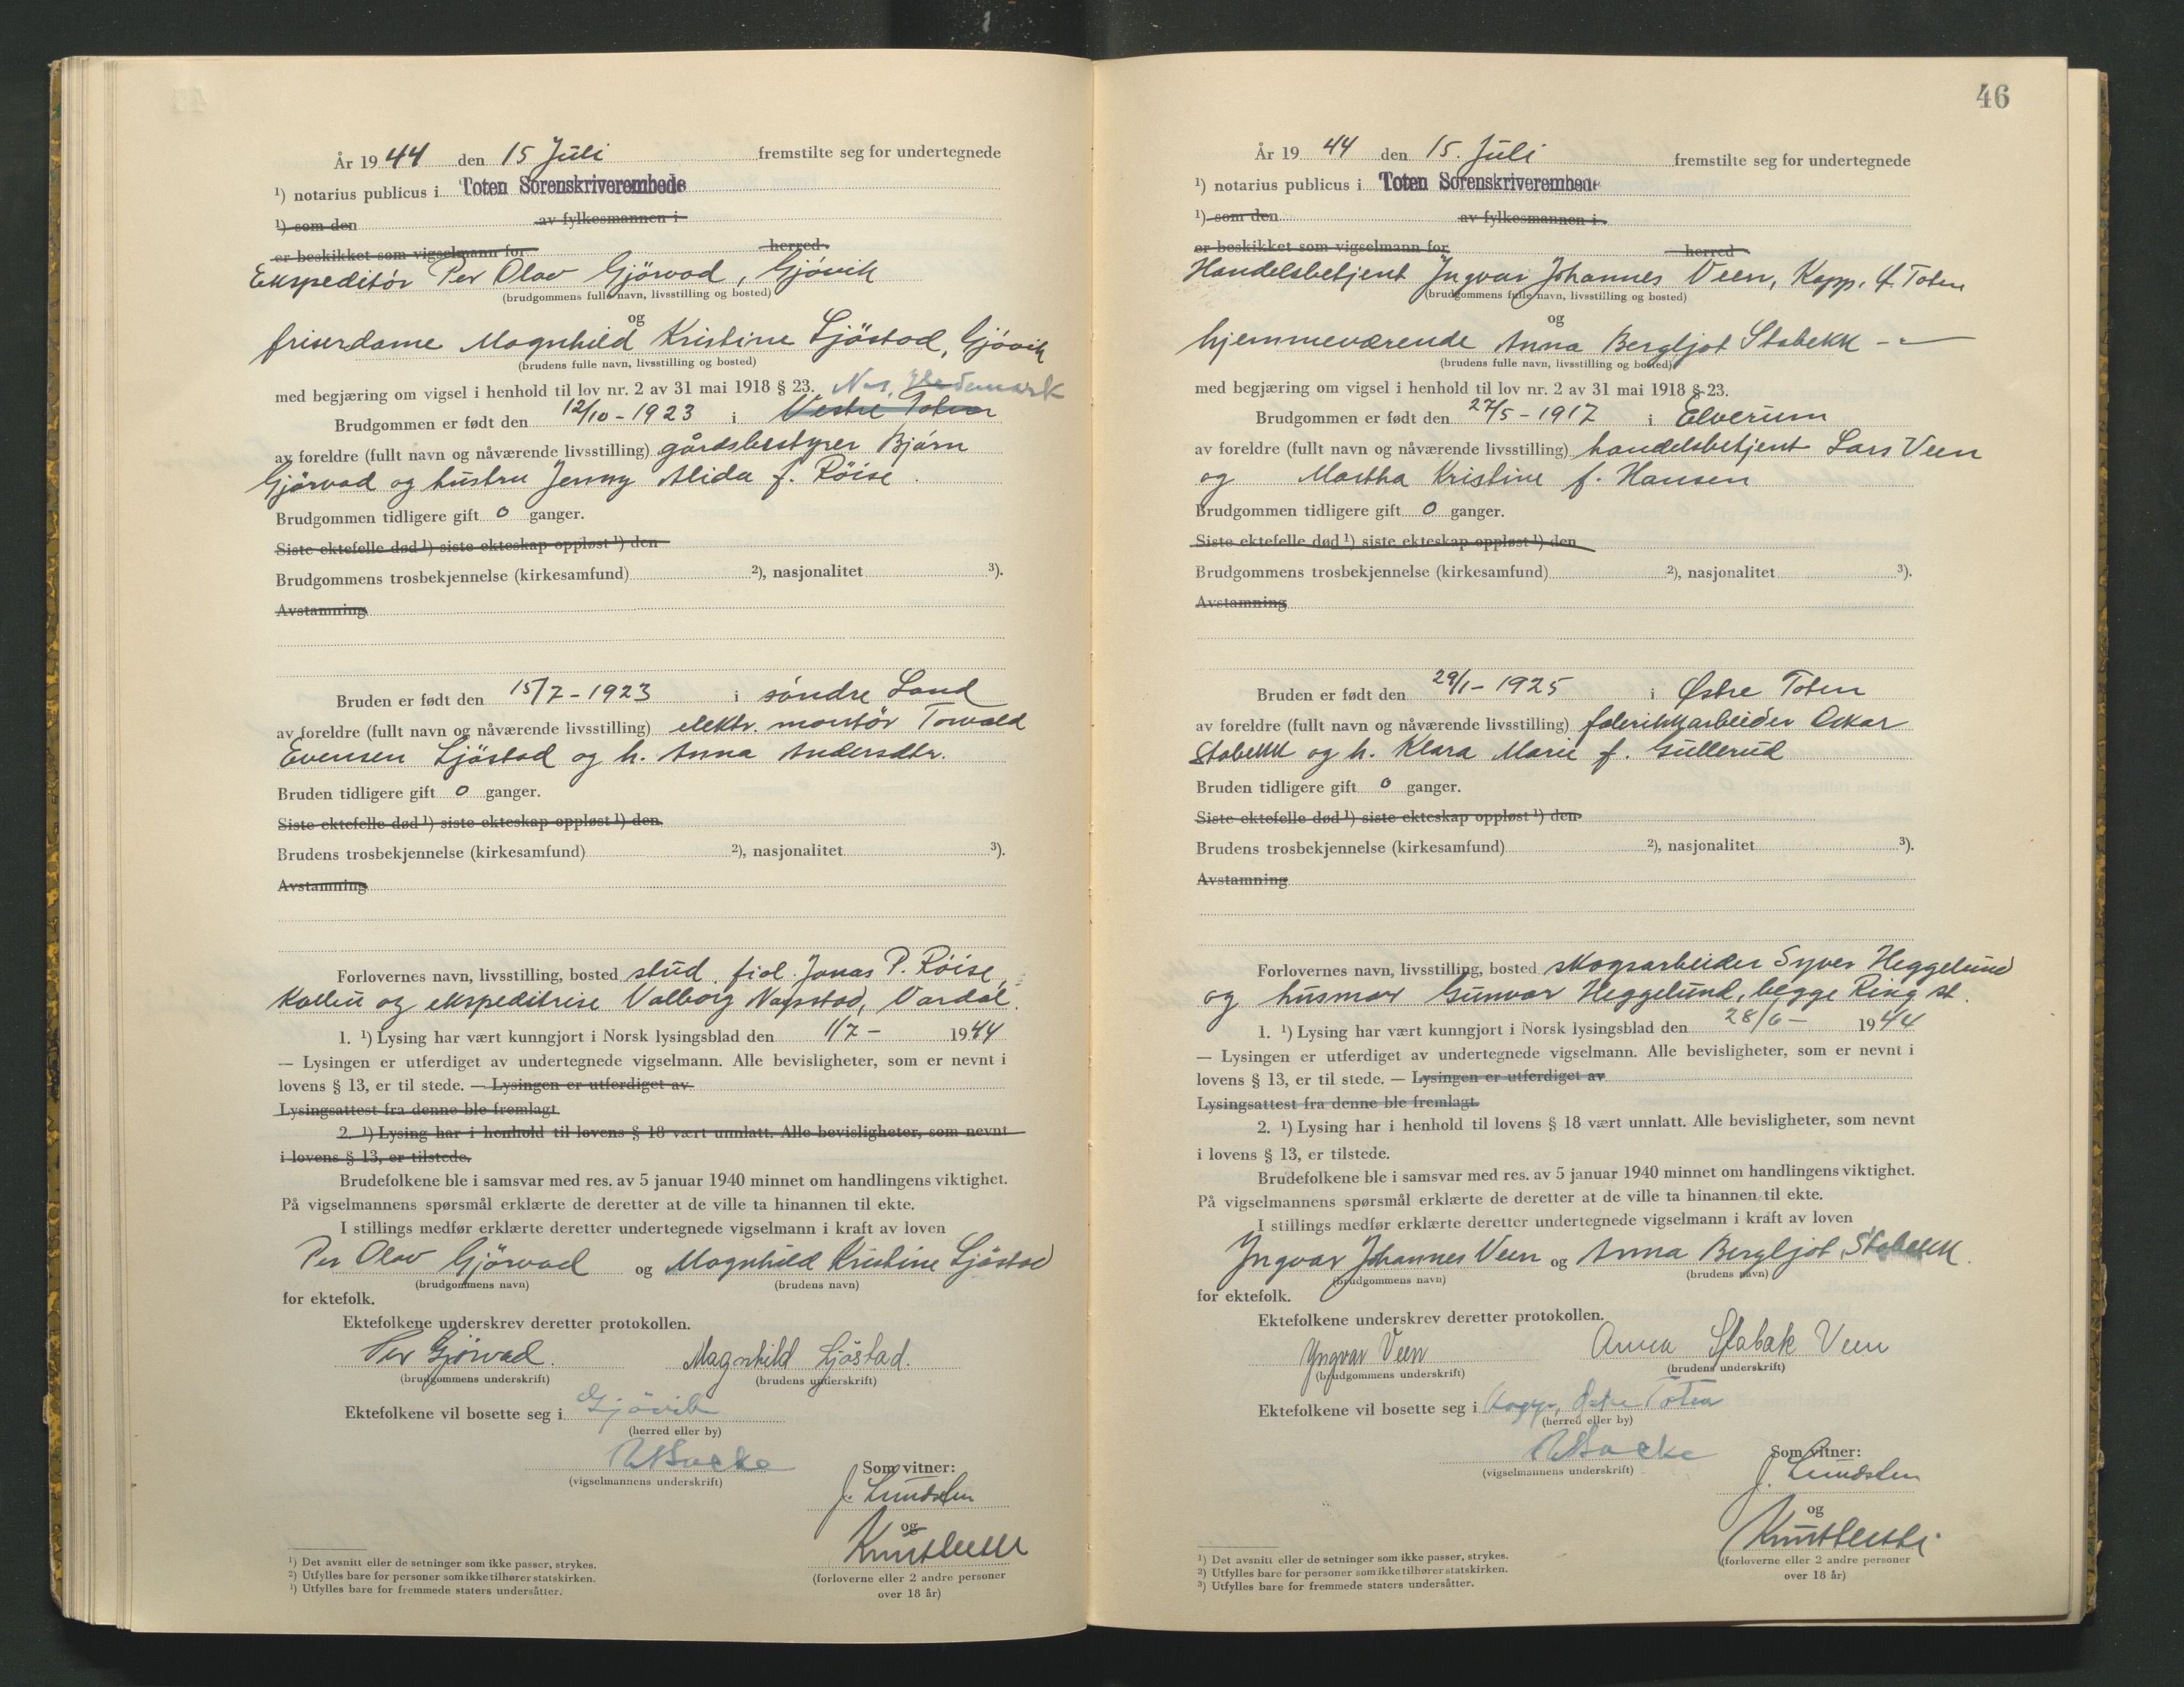 År 1944 den 15 Juli fremstilte seg for undertegnede
¹) notarius publicus i Toten Sorenskriverembede
¹) som den av fylkesmannen i
er beskikket som vigselmann for herred.
Ekspeditör Per Olav Gjörvad, Gjövik
(brudgommens fulle navn, livsstilling og bosted)
og
friserdame Magnhild Kristine Ljöstad, Gjövik
(brudens fulle navn, livsstilling og bosted)
med begjæring om vigsel i henhold til lov nr. 2 av 31 mai 1918 § 23. Nes, Hedemark
Brudgommen er født den 12/10 - 1923 i Vestre Toten
av foreldre (fullt navn og nåværende livsstilling) gårdsbestyrer Bjørn
Gjörvad og hustru Jenny Alida f. Röise.
Brudgommen tidligere gift 0 ganger.
Siste ektefelle død ¹) siste ekteskap oppløst ¹) den
Brudgommens trosbekjennelse (kirkesamfund) ²), nasjonalitet ³).
Avstamning
Bruden er født den 15/7 - 1923 i söndre Land
av foreldre (fullt navn og nåværende livsstilling) elektr. montör Torvald
Evensen Ljöstad og h. Anna Andersdtr.
Bruden tidligere gift 0 ganger.
Siste ektefelle død ¹) siste ekteskap oppløst ¹) den
Brudens trosbekjennelse (kirkesamfund) ²), nasjonalitet ³).
Avstamning
Forlovernes navn, livsstilling, bosted stud. fiol. Jonas P. Röise,
Kolbu og ekspeditrise Valborg Nagstad, Vardal.
1. ¹) Lysing har vært kunngjort i Norsk lysingsblad den 1/7 - 1944
— Lysingen er utferdiget av undertegnede vigselmann. Alle bevisligheter, som er nevnt i
lovens § 13, er til stede. — Lysingen er utferdiget av
Lysingsattest fra denne ble fremlagt
2. ¹) Lysing har i henhold til lovens § 18 vært unnlatt. Alle bevisligheter, som nevnt
i lovens § 13, er tilstede.
Brudefolkene ble i samsvar med res. av 5 januar 1940 minnet om handlingens viktighet.
På vigselmannens spørsmål erklærte de deretter at de ville ta hinannen til ekte.
I stillings medfør erklærte deretter undertegnede vigselmann i kraft av loven
Per Olav Gjörvad og Magnhild Kristine Ljöstad
(brudgommens navn) (brudens navn)
for ektefolk.
Ektefolkene underskrev deretter protokollen.
Per Gjörvad. Magnhild Ljöstad.
(brudgommens underskrift) (brudens underskrift)
Ektefolkene vil bosette seg i Gjövik
(herred eller by)
(vigselmannens underskrift)
Som vitner:
J. Lundsten
og
(forloverne eller 2 andre personer
over 18 år)
¹) Det avsnitt eller de setninger som ikke passer, strykes.
²) Utfylles bare for personer som ikke tilhører statskirken.
¹) Utfylles bare for fremmede staters undersåtter.
46
År 1944 den 15. Juli fremstilte seg for undertegnede
¹) notarius publicus i Toten Sorenskriverembede
¹) som den av fylkesmannen i
er beskikket som vigselmann for herred
Handelsbetjent Yngvar Johannes Veen, Kapp, Ø. Toten
(brudgommens fulle navn, livsstilling og bosted)
og
hjemmeværende Anna Bergljot Stabekk - " -
(brudens fulle navn, livsstilling og bosted)
med begjæring om vigsel i henhold til lov nr. 2 av 31 mai 1918 § 23.
Brudgommen er født den 27/5 - 1917 i Elverum
av foreldre (fullt navn og nåværende livsstilling) handelsbetjent Lars Veen
og Martha Kristine f. Hansen
Brudgommen tidligere gift 0 ganger.
Siste ektefelle død ¹) siste ekteskap oppløst ¹) den
Brudgommens trosbekjennelse (kirkesamfund) ²), nasjonalitet ³).
Avstamning
Bruden er født den 29/1 - 1925 i Østre Toten
av foreldre (fullt navn og nåværende livsstilling) fabrikkarbeider Oskar
Stabekk og h. Klara Marie f. Gullerud
Bruden tidligere gift 0 ganger.
Siste ektefelle død ¹) siste ekteskap oppløst ¹) den
Brudens trosbekjennelse (kirkesamfund) ²), nasjonalitet ³).
Avstamning
Forlovernes navn, livsstilling, bosted skogsarbeider Syver Heggelund
og husmor Gunvor Heggelund, begge Ring st.
1. ¹) Lysing har vært kunngjort i Norsk lysingsblad den 28/6 - 1944
— Lysingen er utferdiget av undertegnede vigselmann. Alle bevisligheter, som er nevnt i
lovens § 13, er til stede. — Lysingen er utferdiget av
Lysingsattest fra denne ble fremlagt.
2. ¹) Lysing har i henhold til lovens § 18 vært unnlatt. Alle bevisligheter, som nevnt
i lovens § 13, er tilstede.
Brudefolkene ble i samsvar med res. av 5 januar 1940 minnet om handlingens viktighet.
På vigselmannens spørsmål erklærte de deretter at de ville ta hinannen til ekte.
I stillings medfør erklærte deretter undertegnede vigselmann i kraft av loven
Yngvar Johannes Veen og Anna Bergljot Stabekk.
(brudgommens navn) (brudens navn)
for ektefolk.
Ektefolkene underskrev deretter protokollen.
Yngvar Veen Anna Stabæk Veen
(brudgommens underskrift) (brudens underskrift)
Ektefolkene vil bosette seg i Kapp, Østre Toten
(herred eller by)
(vigselmannens underskrift)
Som vitner:
J. Lundsten
og
(forloverne eller 2 andre personer
over 18 år)
¹) Det avsnitt eller de setninger som ikke passer, strykes.
²) Utfylles bare for personer som ikke tilhører statskirken.
³) Utfylles bare for fremmede staters undersåtter.